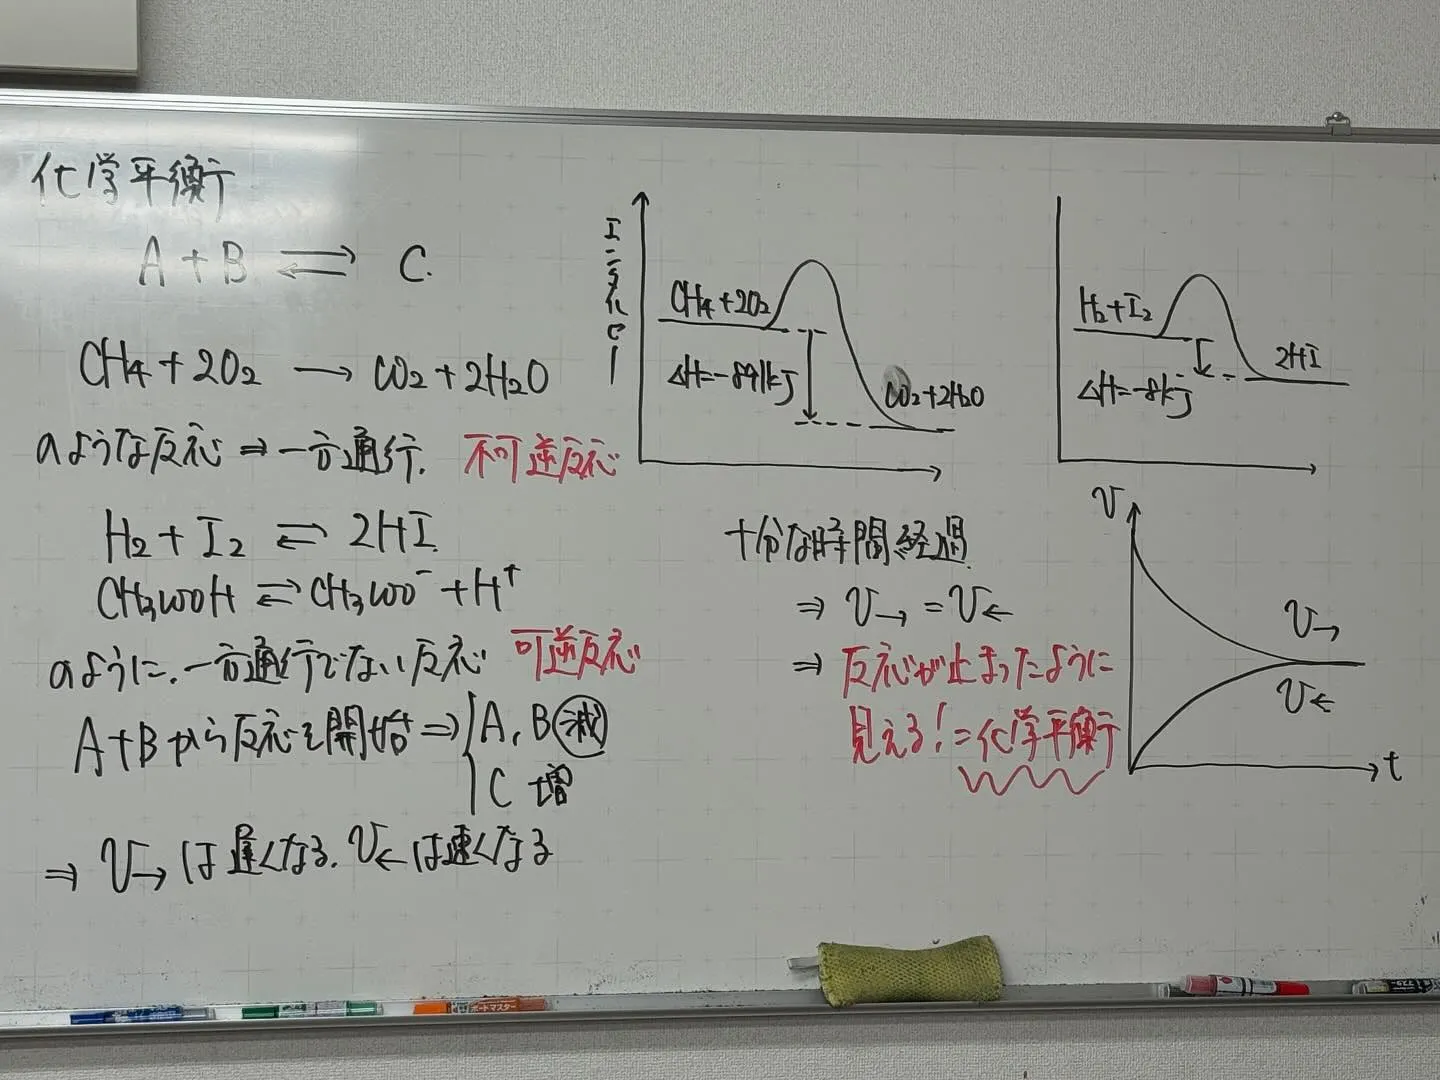 化学平衡
A + B ⇄ C.
CH4 + 2O2 → CO2 + 2H2O
のような反応 ⇒ 一方通行. 不可逆反応
H2 + I2 ⇄ 2HI
CH3COOH ⇄ CH3COO⁻ + H⁺
のように. 一方通行でない反応 可逆反応
A+Bから反応を開始 ⇒ A, B 減
C 増
⇒ V→ は遅くなる. V← は速くなる
エネルギー
CH4 + 2O2
ΔH=-891kJ
CO2 + 2H2O
H2 + I2
ΔH=-8kJ
2HI
十分な時間経過
⇒ V→ = V←
⇒ 反応が止まったように
見える! = 化学平衡
V
V→
V←
t
ボードマスター